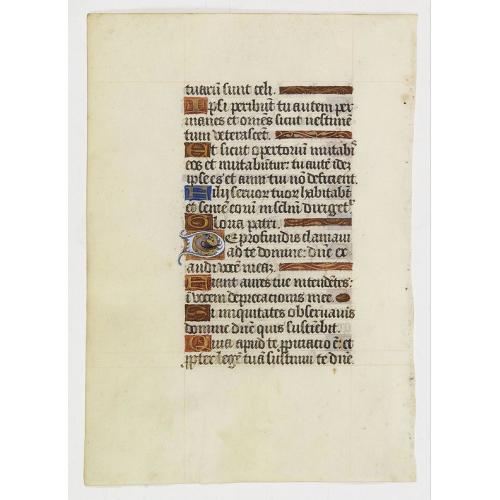 tuarū sunt celi.
Ipsi peribūt tu autem per
manes et om̄es sicut vestimē
tum veterascēt.
Et sicut opertoriū mutabis
eos et mutabūtur: tu autē idē
ipse es et anni tui nō deficient.
Filij servor̄ tuor̄ habitabūt
et semē eorū in sclm̄ dirigetr̄
Gloria patri.
De profundis clamavi
ad te domine: dn̄e ex
audi vocē meā.
Fiant aures tue intēdētes:
ī vocem deprecationis mee.
Si iniquitates observavis
domine dn̄e quis sustīebit.
Quia apud te ppiciatio ē: et
ꝓpter legē tuā sustinui te dn̄e